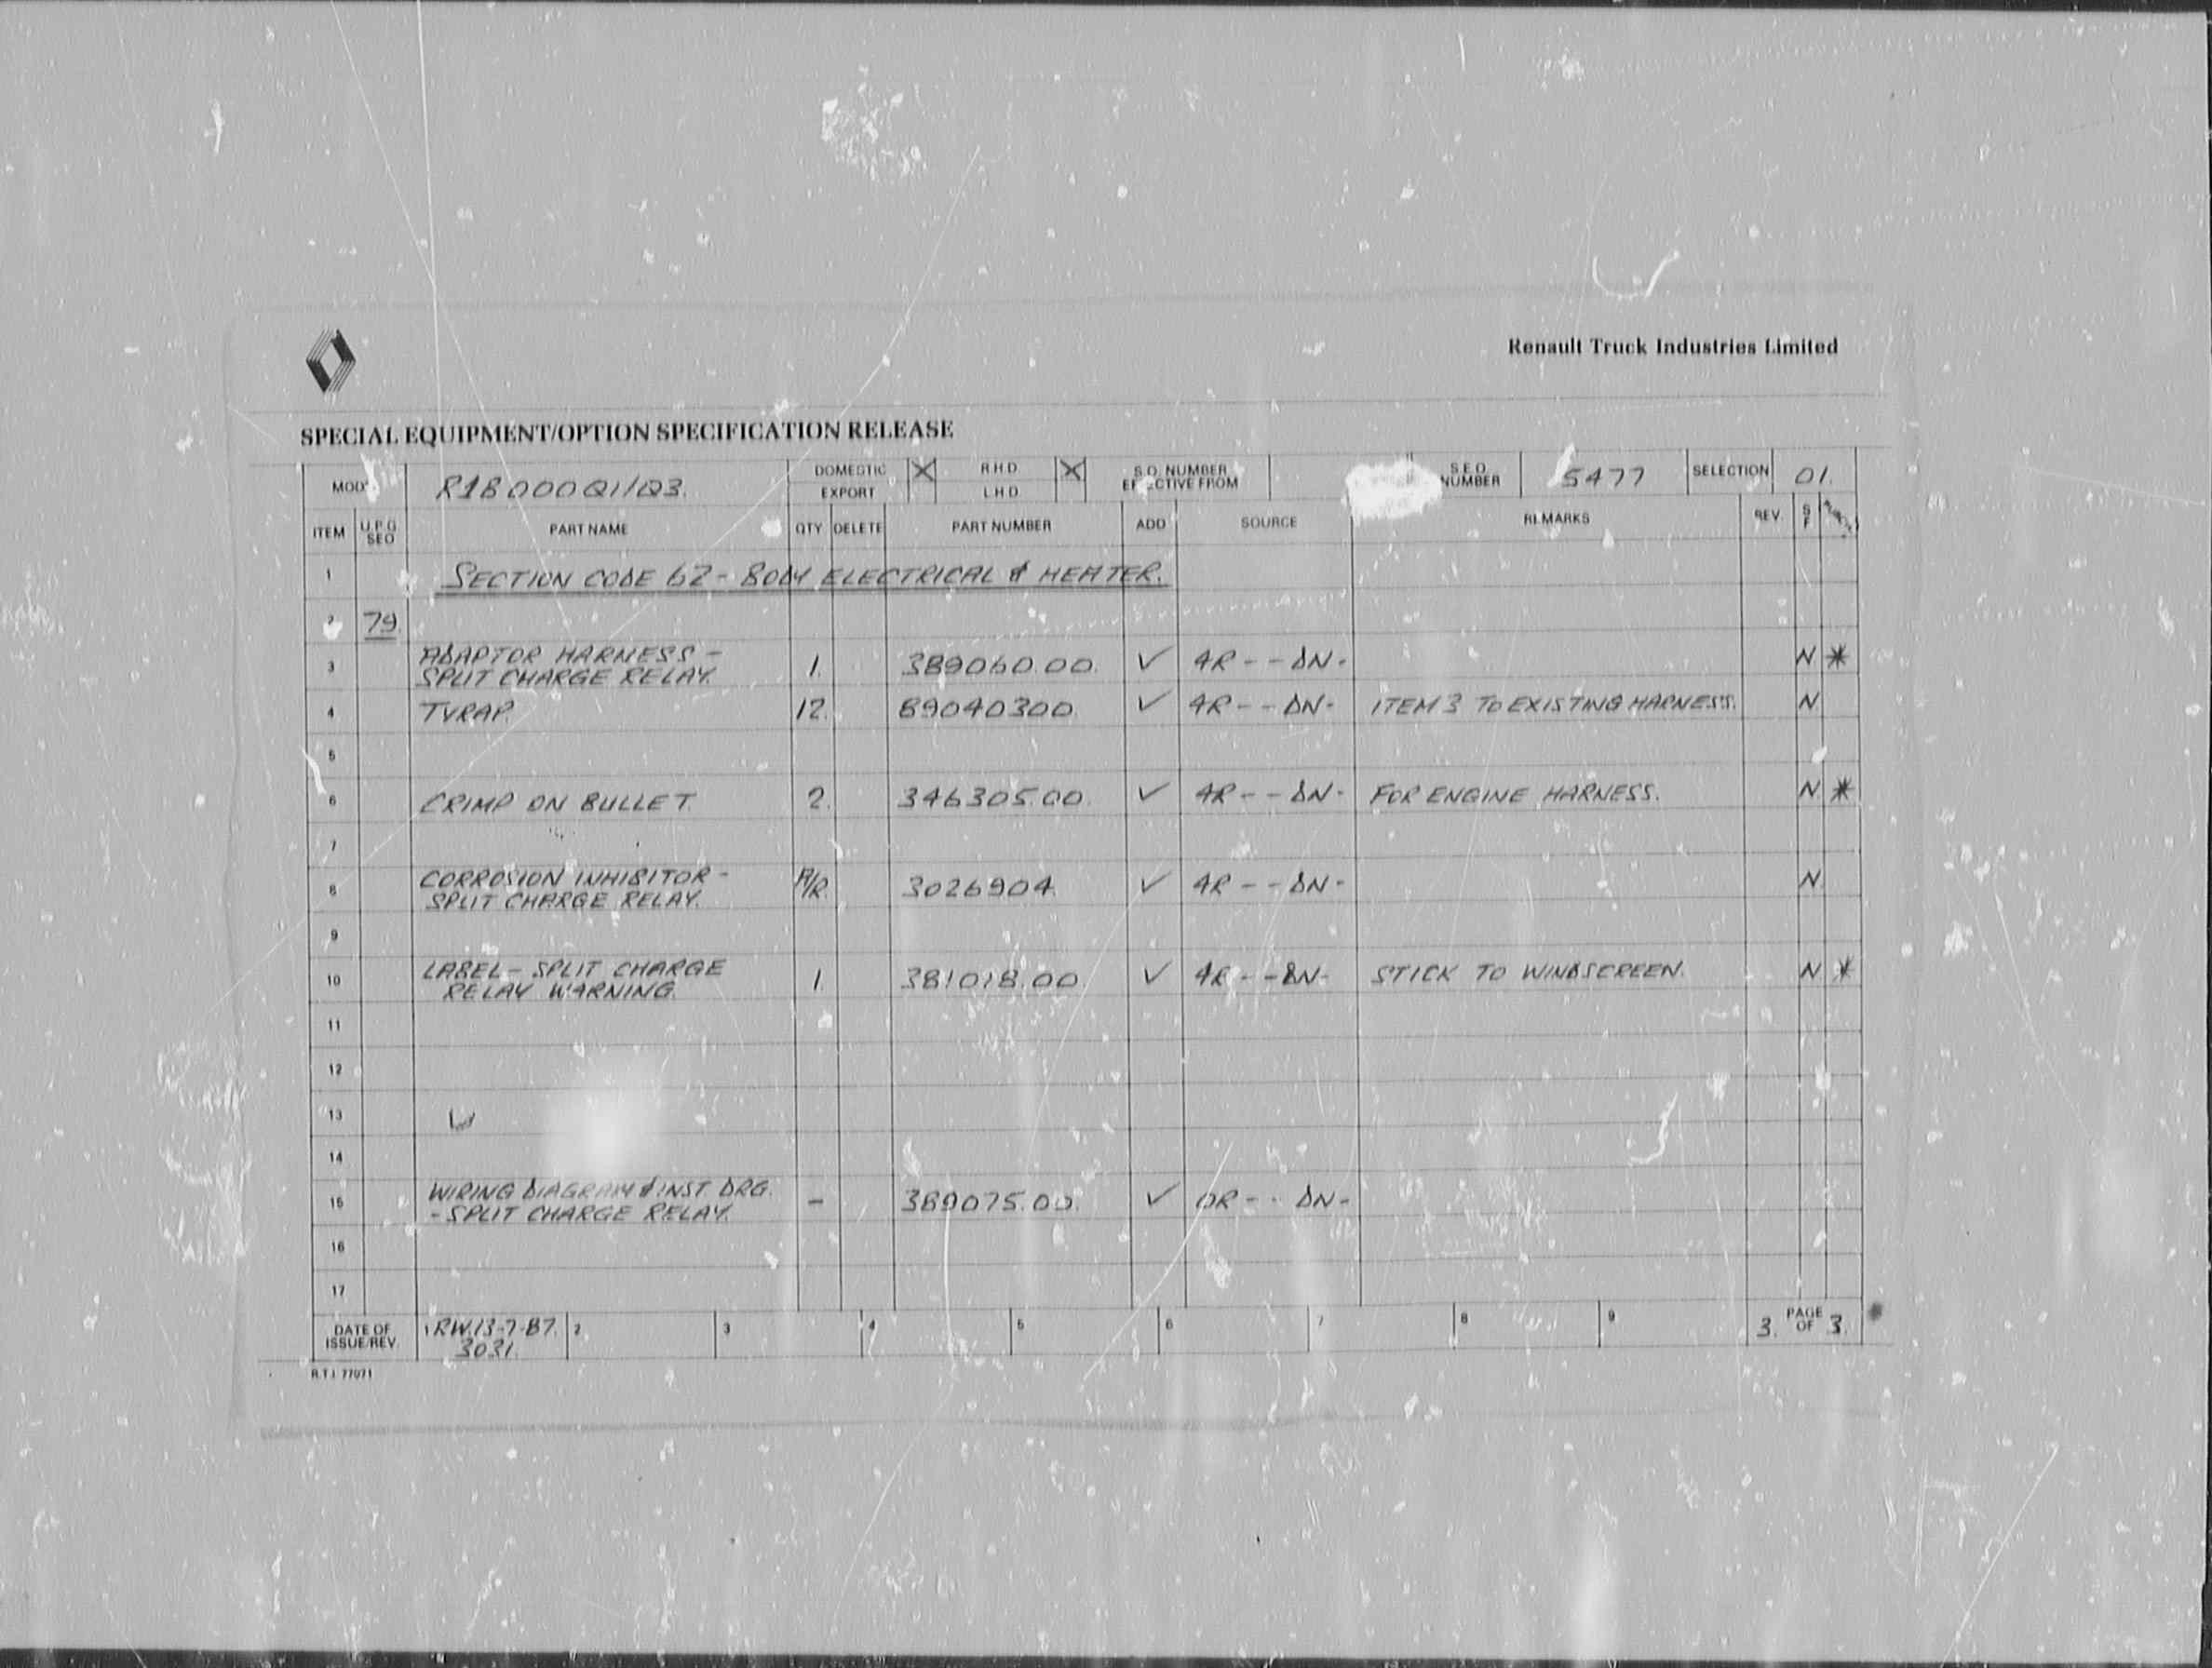 Renault Truck Industries Limited
SPECIAL EQUIPMENT/OPTION SPECIFICATION RELEASE
MOD R18000Q1/Q3. DOMESTIC X R.H.D X S.O. NUMBER S.E.O. 5477 SELECTION 01.
EXPORT L.H.D EFFECTIVE FROM NUMBER
ITEM U.P.G SEQ PART NAME QTY DELETE PART NUMBER ADD SOURCE REMARKS REV. S F
1 SECTION CODE 62 - BODY ELECTRICAL & HEATER.
2 79.
3 ADAPTOR HARNESS - 1. 389060.00. ✓ 4R - - DN - N *
SPLIT CHARGE RELAY.
4 TYRAP. 12. 89040300. ✓ 4R - - DN - ITEM 3 TO EXISTING HARNESS. N
5
6 CRIMP ON BULLET. 2. 346305.00. ✓ 4R - - DN - FOR ENGINE HARNESS. N *
7
8 CORROSION INHIBITOR - A/R. 3026904. ✓ 4R - - DN - N.
SPLIT CHARGE RELAY.
9
10 LABEL - SPLIT CHARGE 1. 381018.00. ✓ 4R - - DN - STICK TO WINDSCREEN. N *
RELAY WARNING.
11
12
13
14
15 WIRING DIAGRAM & INST. DRG. - 389075.00. ✓ 0R - - DN -
- SPLIT CHARGE RELAY.
16
17
DATE OF ISSUE/REV. 1 RW.13-7-87. 2 3 4 5 6 7 8 9 3. PAGE OF 3.
3031.
R.T.I. 77071